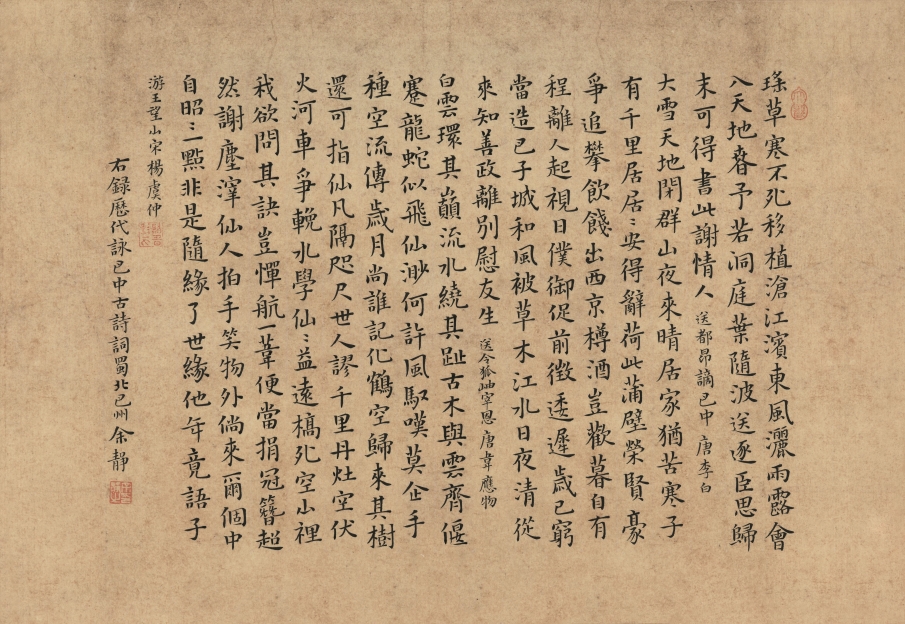 瑤草寒不死移植滄江濱東風灑雨露會
入天地春予若洞庭葉隨波送逐臣思歸
末可得書此謝情人 送都昂謫巴中 唐李白
大雪天地閉群山夜來晴居家猶苦寒子
有千里居居〻安得辭荷此蒲璧榮賢豪
爭追攀飲餞出西京樽酒豈歡暮自有
程離人起視日僕御促前徴逶遲歲已窮
當造巴子城和風被草木江水日夜清從
來知善政離別慰友生 送令狐岫宰恩 唐韋應物
白雲環其巔流水繞其趾古木與雲齊偃
蹇龍蛇似飛仙渺何許風馭嘆莫企手
種空流傳歲月尚誰記化鶴空歸來其樹
還可指仙凡隔咫尺世人謬千里丹灶空伏
火河車爭輓水學仙〻益遠槁死空山裡
我欲問其訣豈憚航一葦便當捐冠簪超
然謝塵滓仙人拍手笑物外倘來爾個中
自昭〻一點非是隨緣了世緣他年竟語子
游王望山 宋楊虞仲
右錄歷代詠巴中古詩詞蜀北巴州余靜